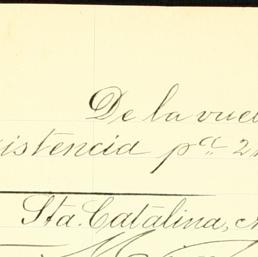 De la vuel
istencia pª 2
Sta. Catalina,